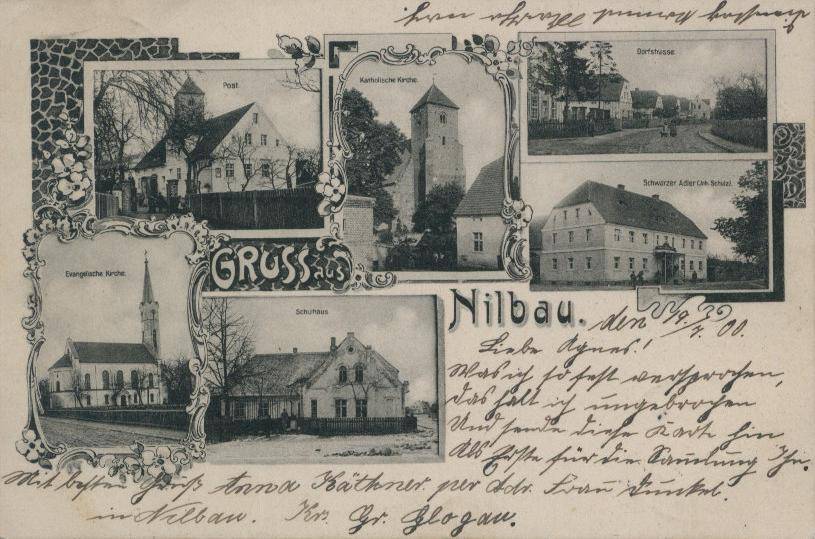 Post.
Katholische Kirche.
Dorfstrasse
Schwarzer Adler (Joh. Schulz).
Evangelische Kirche.
GRUSS aus
Schulhaus
Nilbau.
den 19./7. 00.
Liebe Agnes!
Was ich so fest versprochen,
das halt ich ungebrochen
Und sende diese Karte hin
Als Erste für die Samlung Ihn.
Mit besten Gruß Anna Käthner. per Adr. Frau Dunkel.
in Nilbau. Kr. Gr. Glogau.